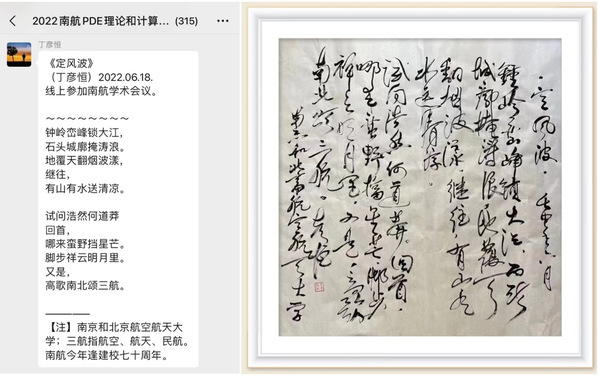 2022南航PDE理论和计算... (315)
丁彦恒
《定风波》
（丁彦恒）2022.06.18.
线上参加南航学术会议。
～～～～～～～～
钟岭峦峰锁大江，
石头城廓掩涛浪。
地覆天翻烟波漾，
继往，
有山有水送清凉。
试问浩然何道莽
回首，
哪来蛮野挡星芒。
脚步祥云明月里。
又是，
高歌南北颂三航。
————
【注】南京和北京航空航天大
学；三航指航空、航天、民航。
南航今年逢建校七十周年。
定风波
钟岭峦峰锁大江 石头
城廓掩涛浪 地覆天
翻烟波漾 继往 有山有
水送清凉
试问浩然何道莽 回首
哪来蛮野挡星芒 脚步
祥云明月里 又是 高歌
南北颂三航
南京和北京航空航天大学